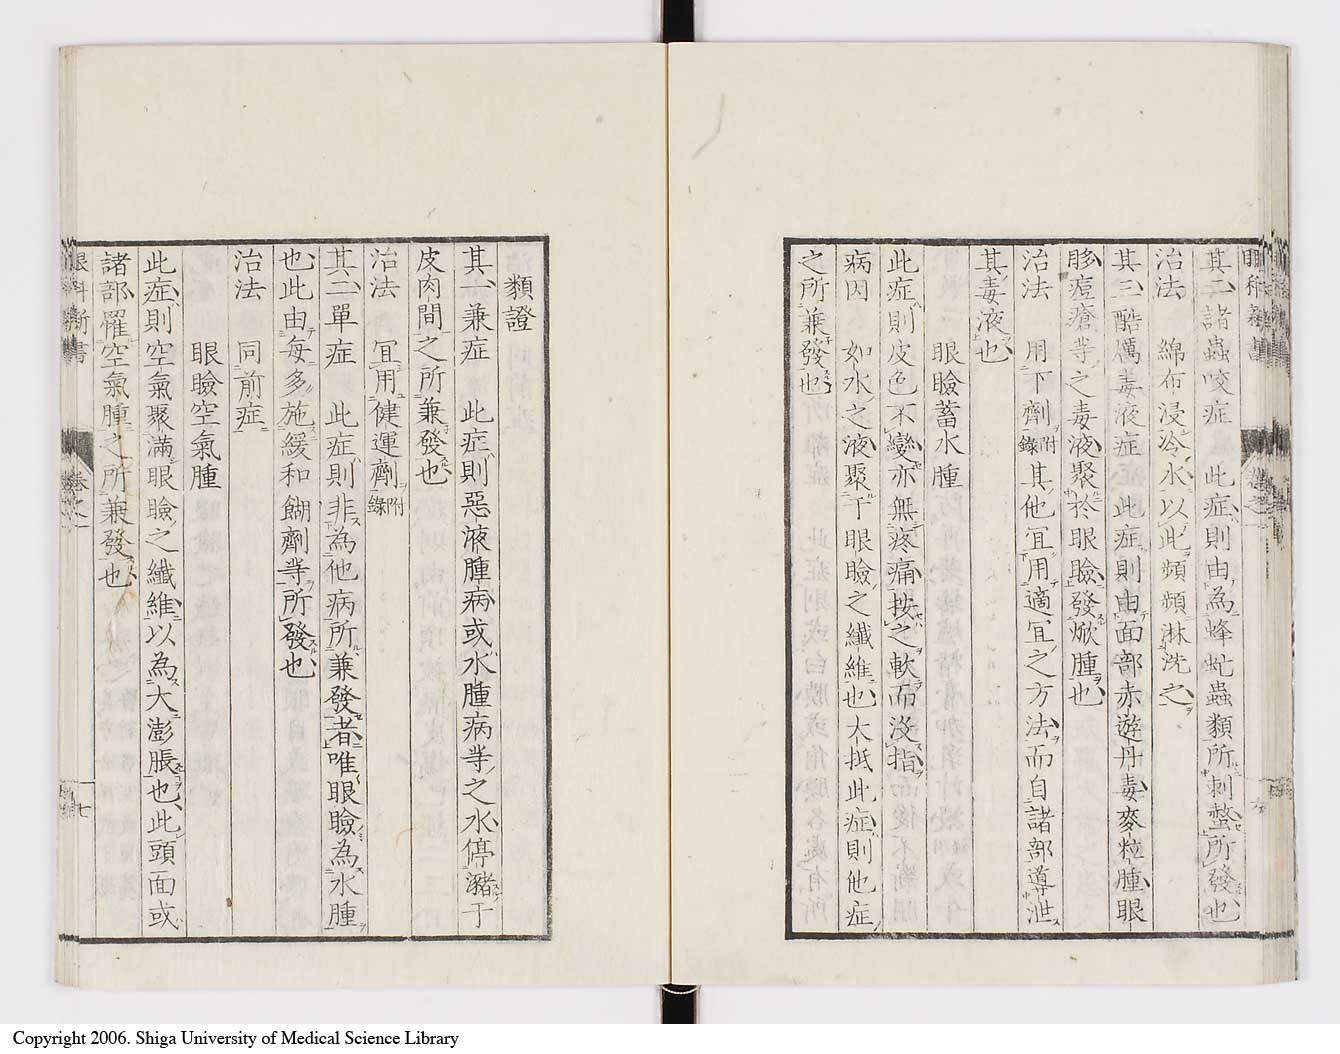 眼科新書
其二諸蟲咬症 此症則由為蜂虻蟲類所刺螫所發也
治法 綿布浸冷水以此頻頻淋洗之
其三酷厲毒液症 此症則由面部赤遊丹毒麥粒腫眼
胗痘瘡等之毒液聚於眼瞼發焮腫也
治法 用下劑附錄其他宜用適宜之方法而自諸部導泄
其毒液也
眼瞼蓄水腫
此症則皮色不變亦無疼痛按之軟而沒指
病因 如水之液聚于眼瞼之纖維也大抵此症則他症
之所兼發也
類證
其一兼症 此症則惡液腫病或水腫病等之水停瀦于
皮肉間之所兼發也
治法 宜用健運劑附錄
其二單症 此症則非為他病所兼發者唯眼瞼為水腫
也此由每多施緩和餬劑等所發也
治法 同前症
眼瞼空氣腫
此症則空氣聚滿眼瞼之纖維以為大澎脹也此頭面或
諸部罹空氣腫之所兼發也
眼科新書
卷之一
七
Copyright 2006. Shiga University of Medical Science Library